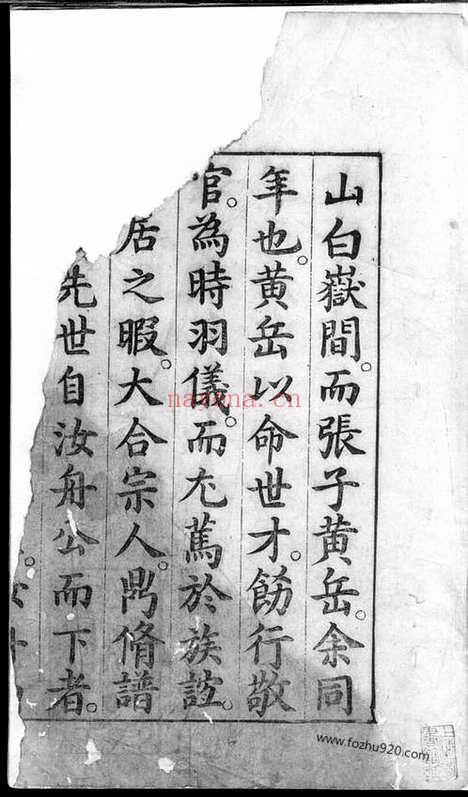 山白嶽間。而張子黃岳。余同
年也。黃岳以命世才。飭行敬
官。為時羽儀。而尤篤於族誼。
居之暇。大合宗人。鳩脩譜
先世自汝舟公而下者。
nayona.cn
www.fozhu920.com